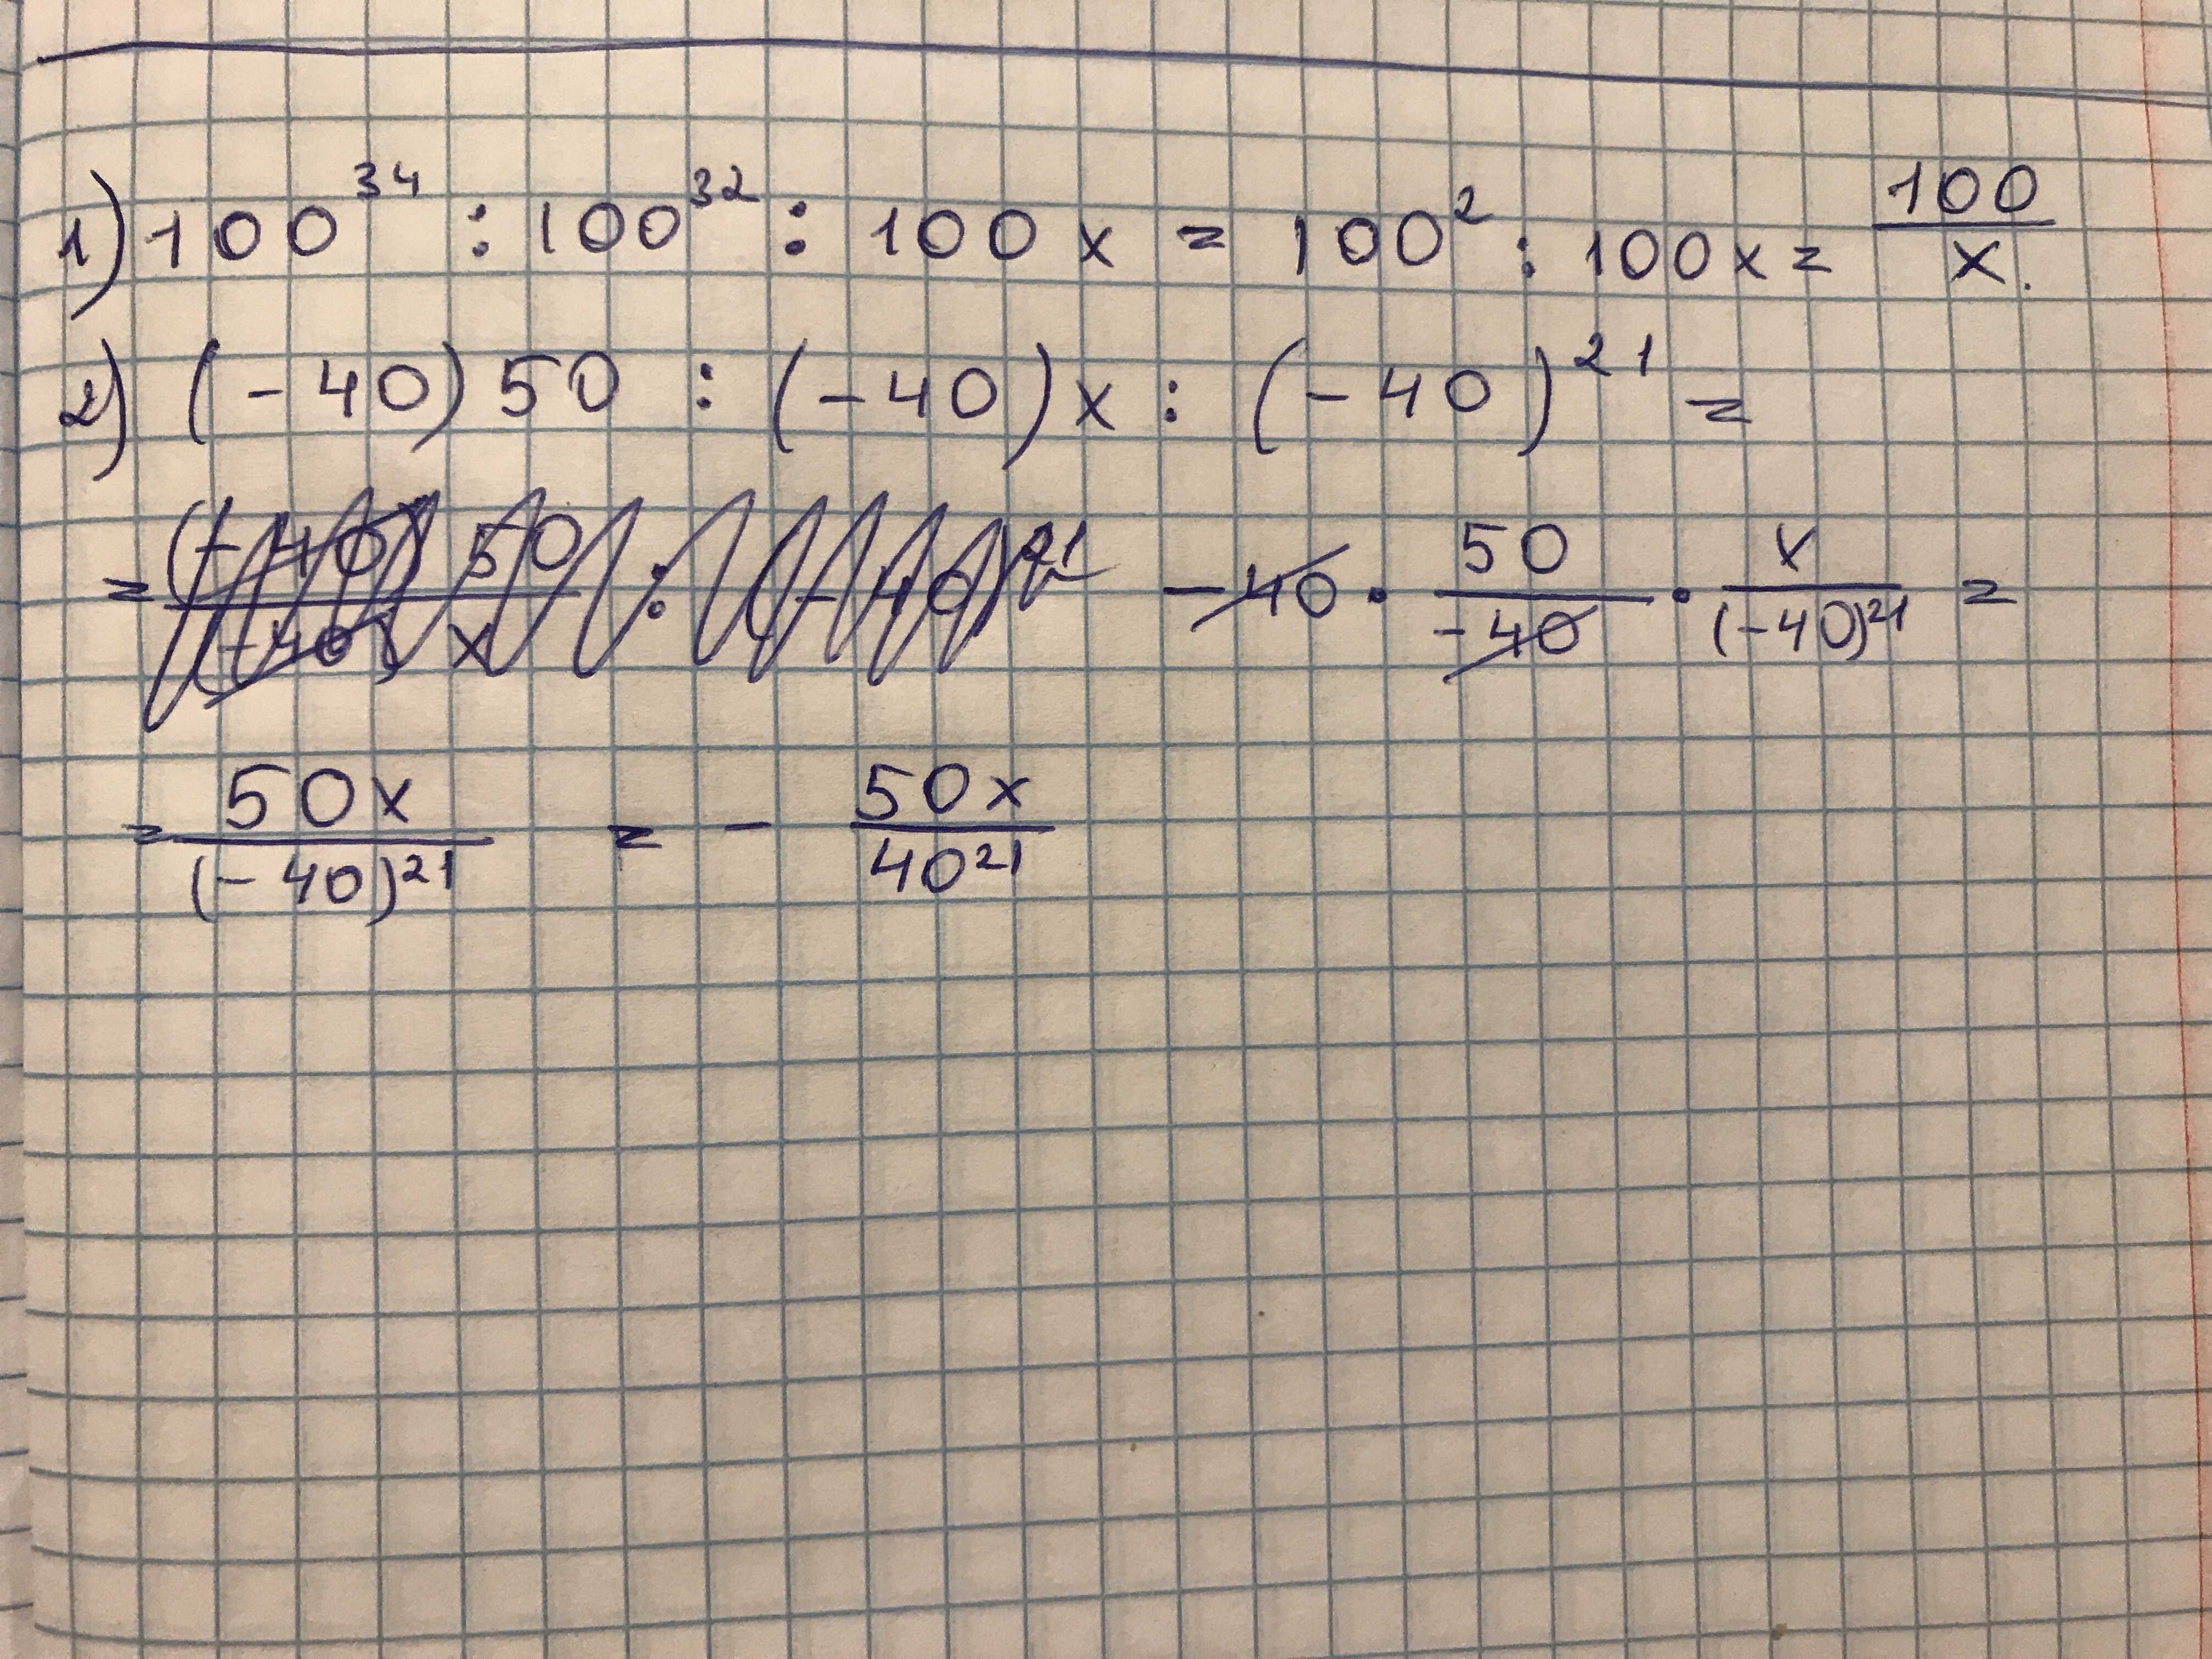 1) 100³⁴ : 100³² : 100 x = 100² : 100x = 100/x.
2) (-40) 50 : (-40) x : (-40)²¹ =
= -40 · 50/-40 · x/(-40)²¹ =
= 50x/(-40)²¹ = - 50x/40²¹